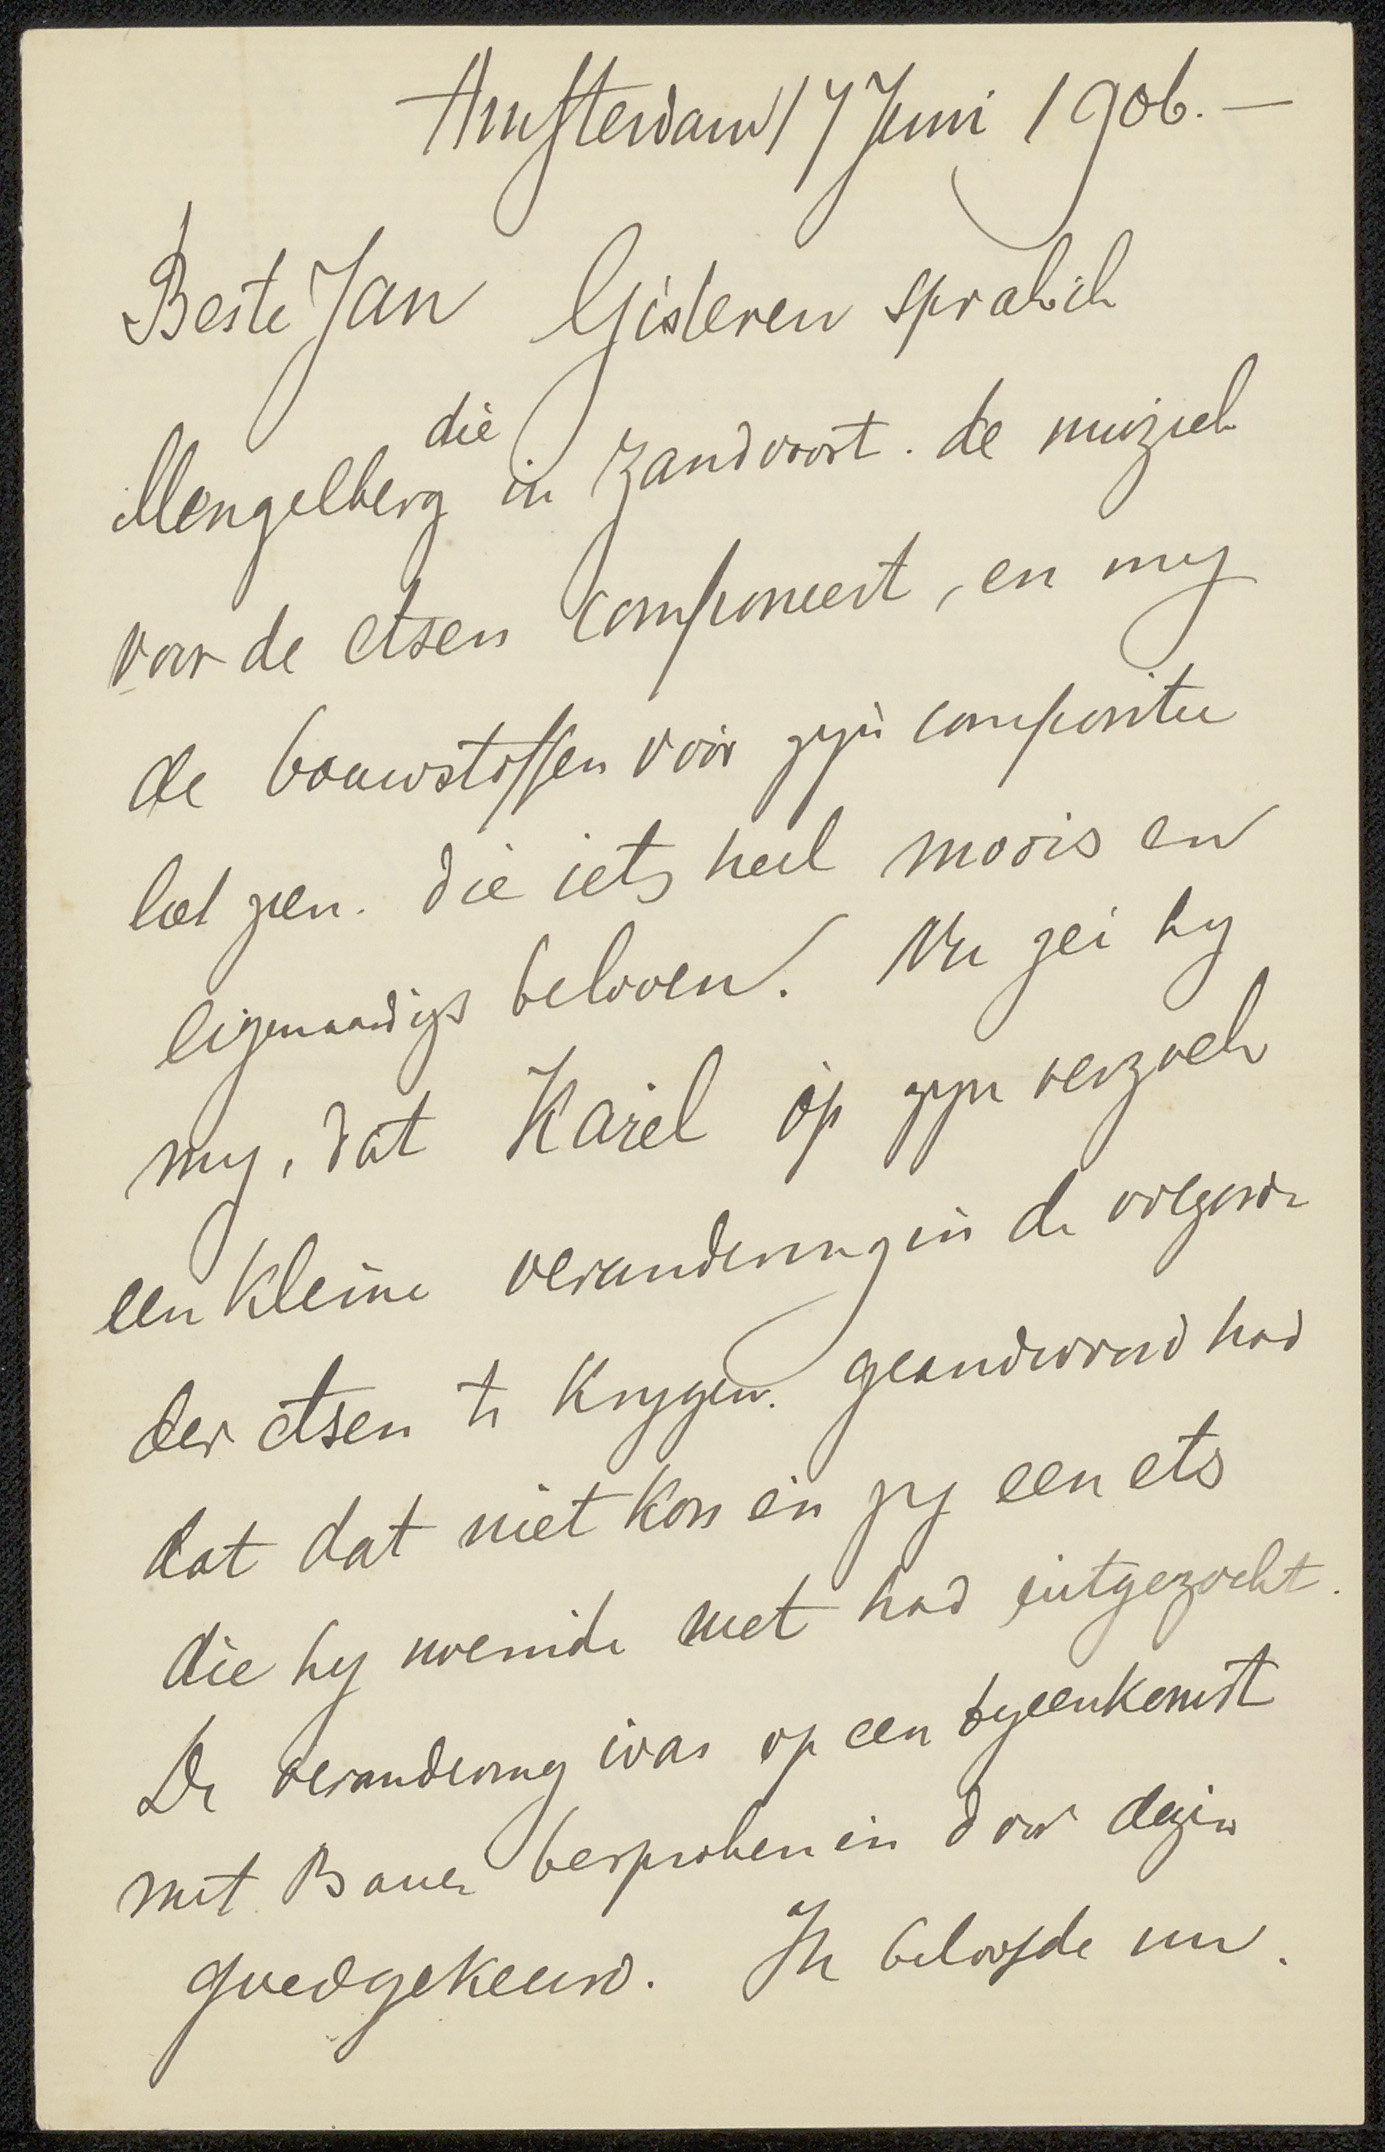 Amsterdam 17 Juni 1906. —
Beste Jan Gisteren sprak ik
Mengelberg die in Zandvoort. de muziek
voor de etsen componeert, en my
de bouwstoffen voor zyn compositie
liet zien. die iets heel moois en
eigenaardigs beloven. Nu zei hy
my, dat Karel op zyn verzoek
een kleine verandering in de volgorde
der etsen te krygen. geandwoord had
dat dat niet kon en zy een ets
die hy noemde niet had uitgezocht.
De verandering was op een byeenkomst
met Bauer besproken en door dezen
goedgekeurd. Ik beloofde nu.